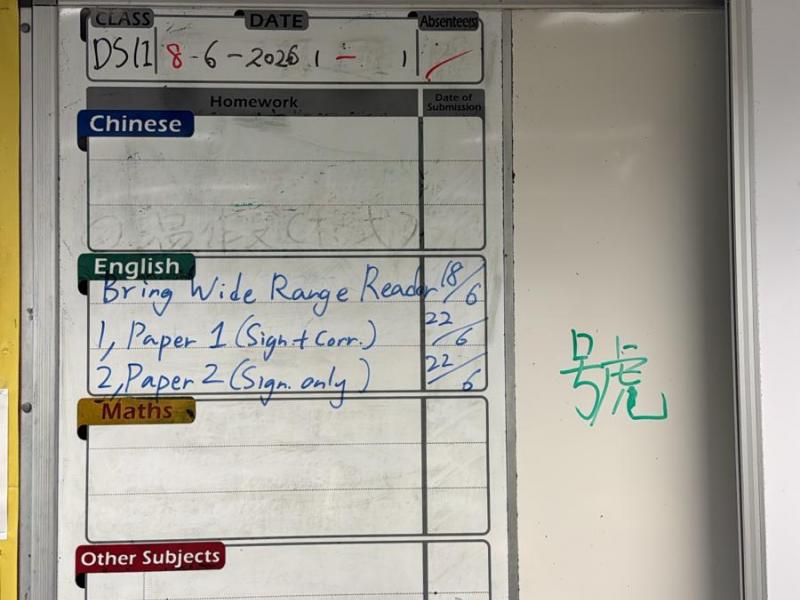 CLASS DATE Absentees
DS(1 8-6-2026 ( - )
Homework Date of Submission
Chinese
English
Bring Wide Range Reader 18/6
1, Paper 1 (Sign + Corr.) 22/6
2, Paper 2 (Sign. only) 22/6
Maths
Other Subjects
號